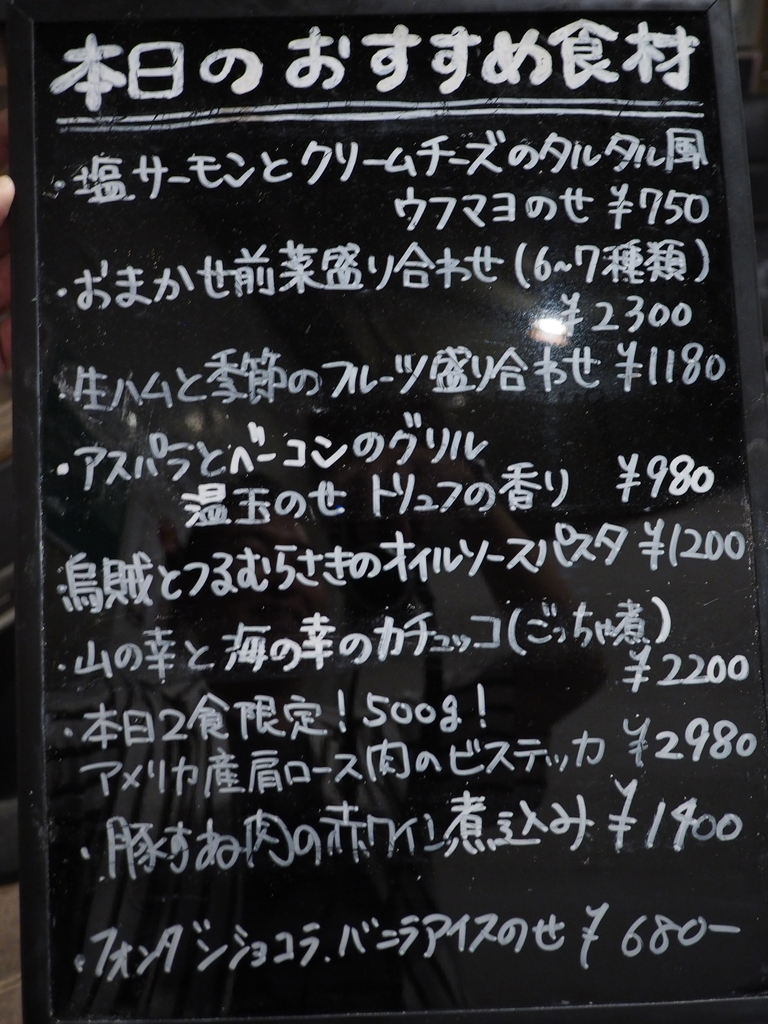 本日のおすすめ食材
・塩サーモンとクリームチーズのタルタル風
ウフマヨのせ ¥750
・おまかせ前菜盛り合わせ(6~7種類)
¥2300
・生ハムと季節のフルーツ盛り合わせ ¥1180
・アスパラとベーコンのグリル
温玉のせ トリュフの香り ¥980
烏賊とつるむらさきのオイルソースパスタ ¥1200
・山の幸と海の幸のカチュッコ(ごっちゃ煮)
¥2200
・本日2食限定!500g!
アメリカ産肩ロース肉のビステッカ ¥2980
・豚すね肉の赤ワイン煮込み ¥1400
・フォンダンショコラ、バニラアイスのせ ¥680-